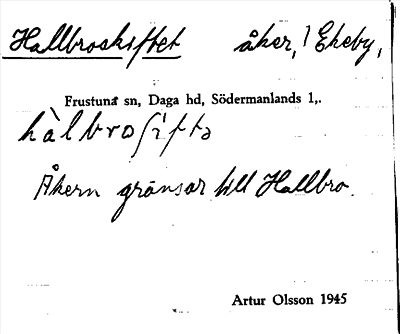 Hallbroskiftet åker, i Ekeby,
Frustuna sn, Daga hd, Södermanlands l,.
hàlbroſiftə
Åkern gränsar till Hallbro.
Artur Olsson 1945